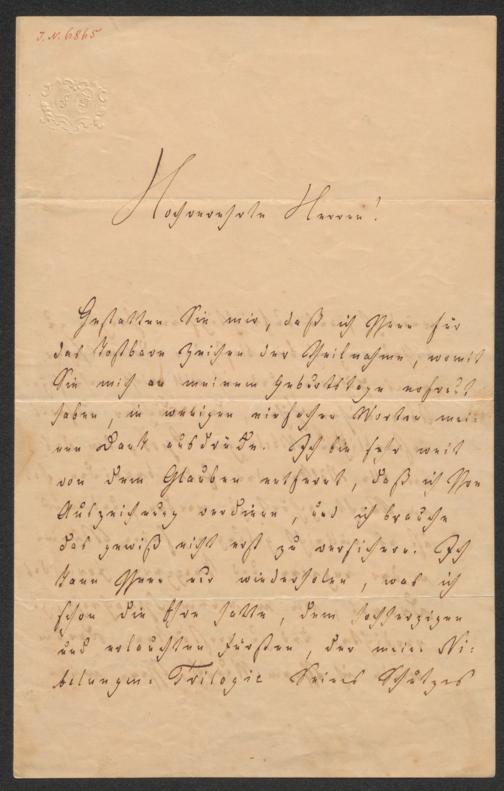 J. N. 6865
Hochverehrte Herren!
Gestatten Sie mir, daß ich Ihnen für
das kostbare Zeichen der Theilnahme, womit
Sie mich an meinem Geburtstage erfreut
haben, in wenigen einfachen Worten mei-
nen Dank ausdrücke. Ich bin sehr weit
von dem Glauben entfernt, daß ich Ihre
Auszeichnung verdiene, und ich brauche
das gewiß nicht erst zu versichern. Ich
kann Ihnen nur wiederholen, was ich
schon die Ehre hatte, dem hochherzigen
und erlauchten Fürsten, der meine Ni-
belungen-Trilogie Seines Schutzes